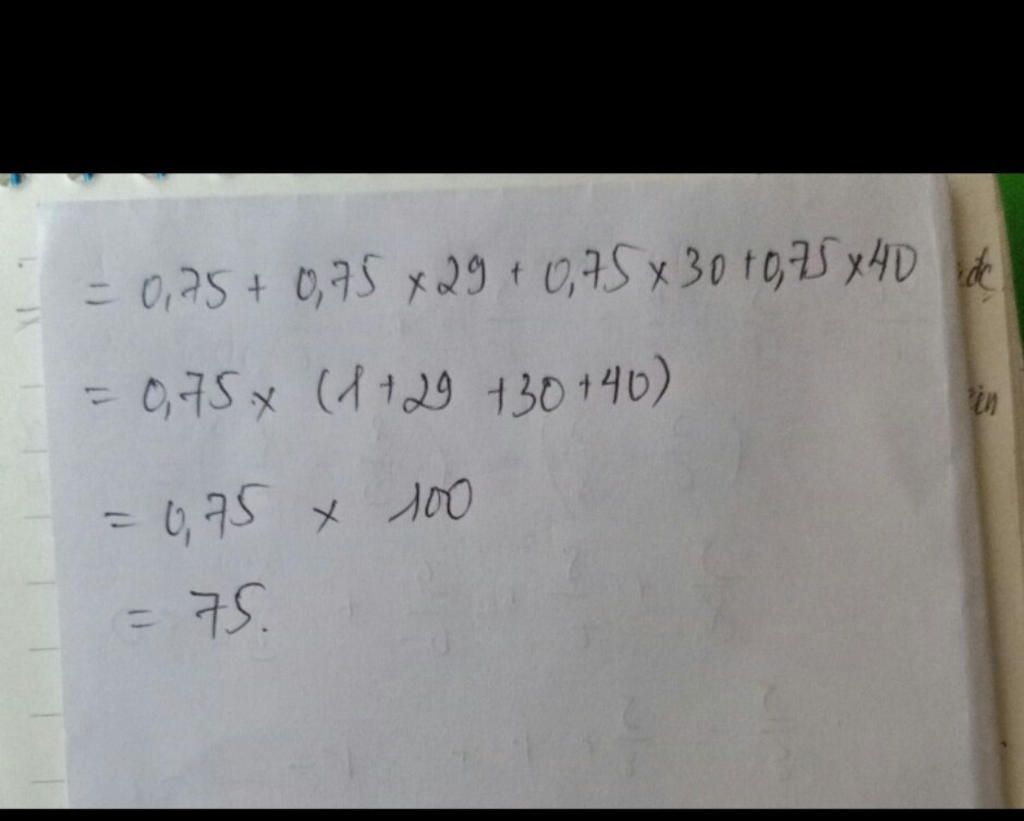 = 0,75 + 0,75 × 29 + 0,75 × 30 + 0,75 × 40
= 0,75 × (1 + 29 + 30 + 40)
= 0,75 × 100
= 75.